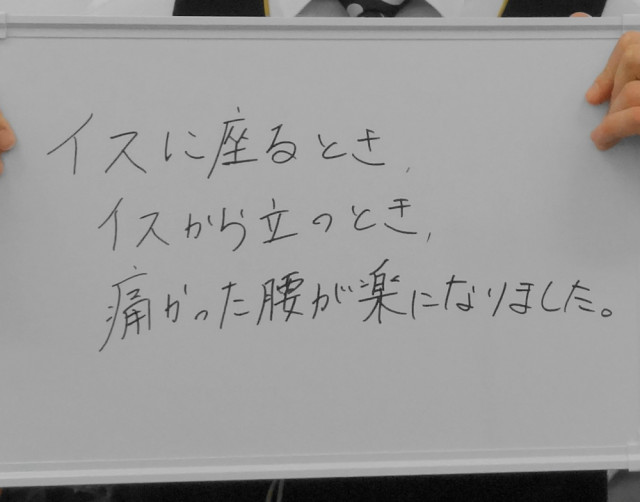 イスに座るとき,
イスから立つとき,
痛かった腰が楽になりました。